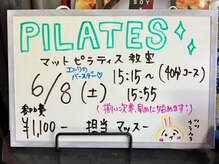 PILATES
マットピラティス教室
エニリの
バースデー♡
6/8(土)
15:15〜
15:55
(40分コース)
(揃い次第、早めに始めます♪)
参加費
¥1,100-
担当 マッスー